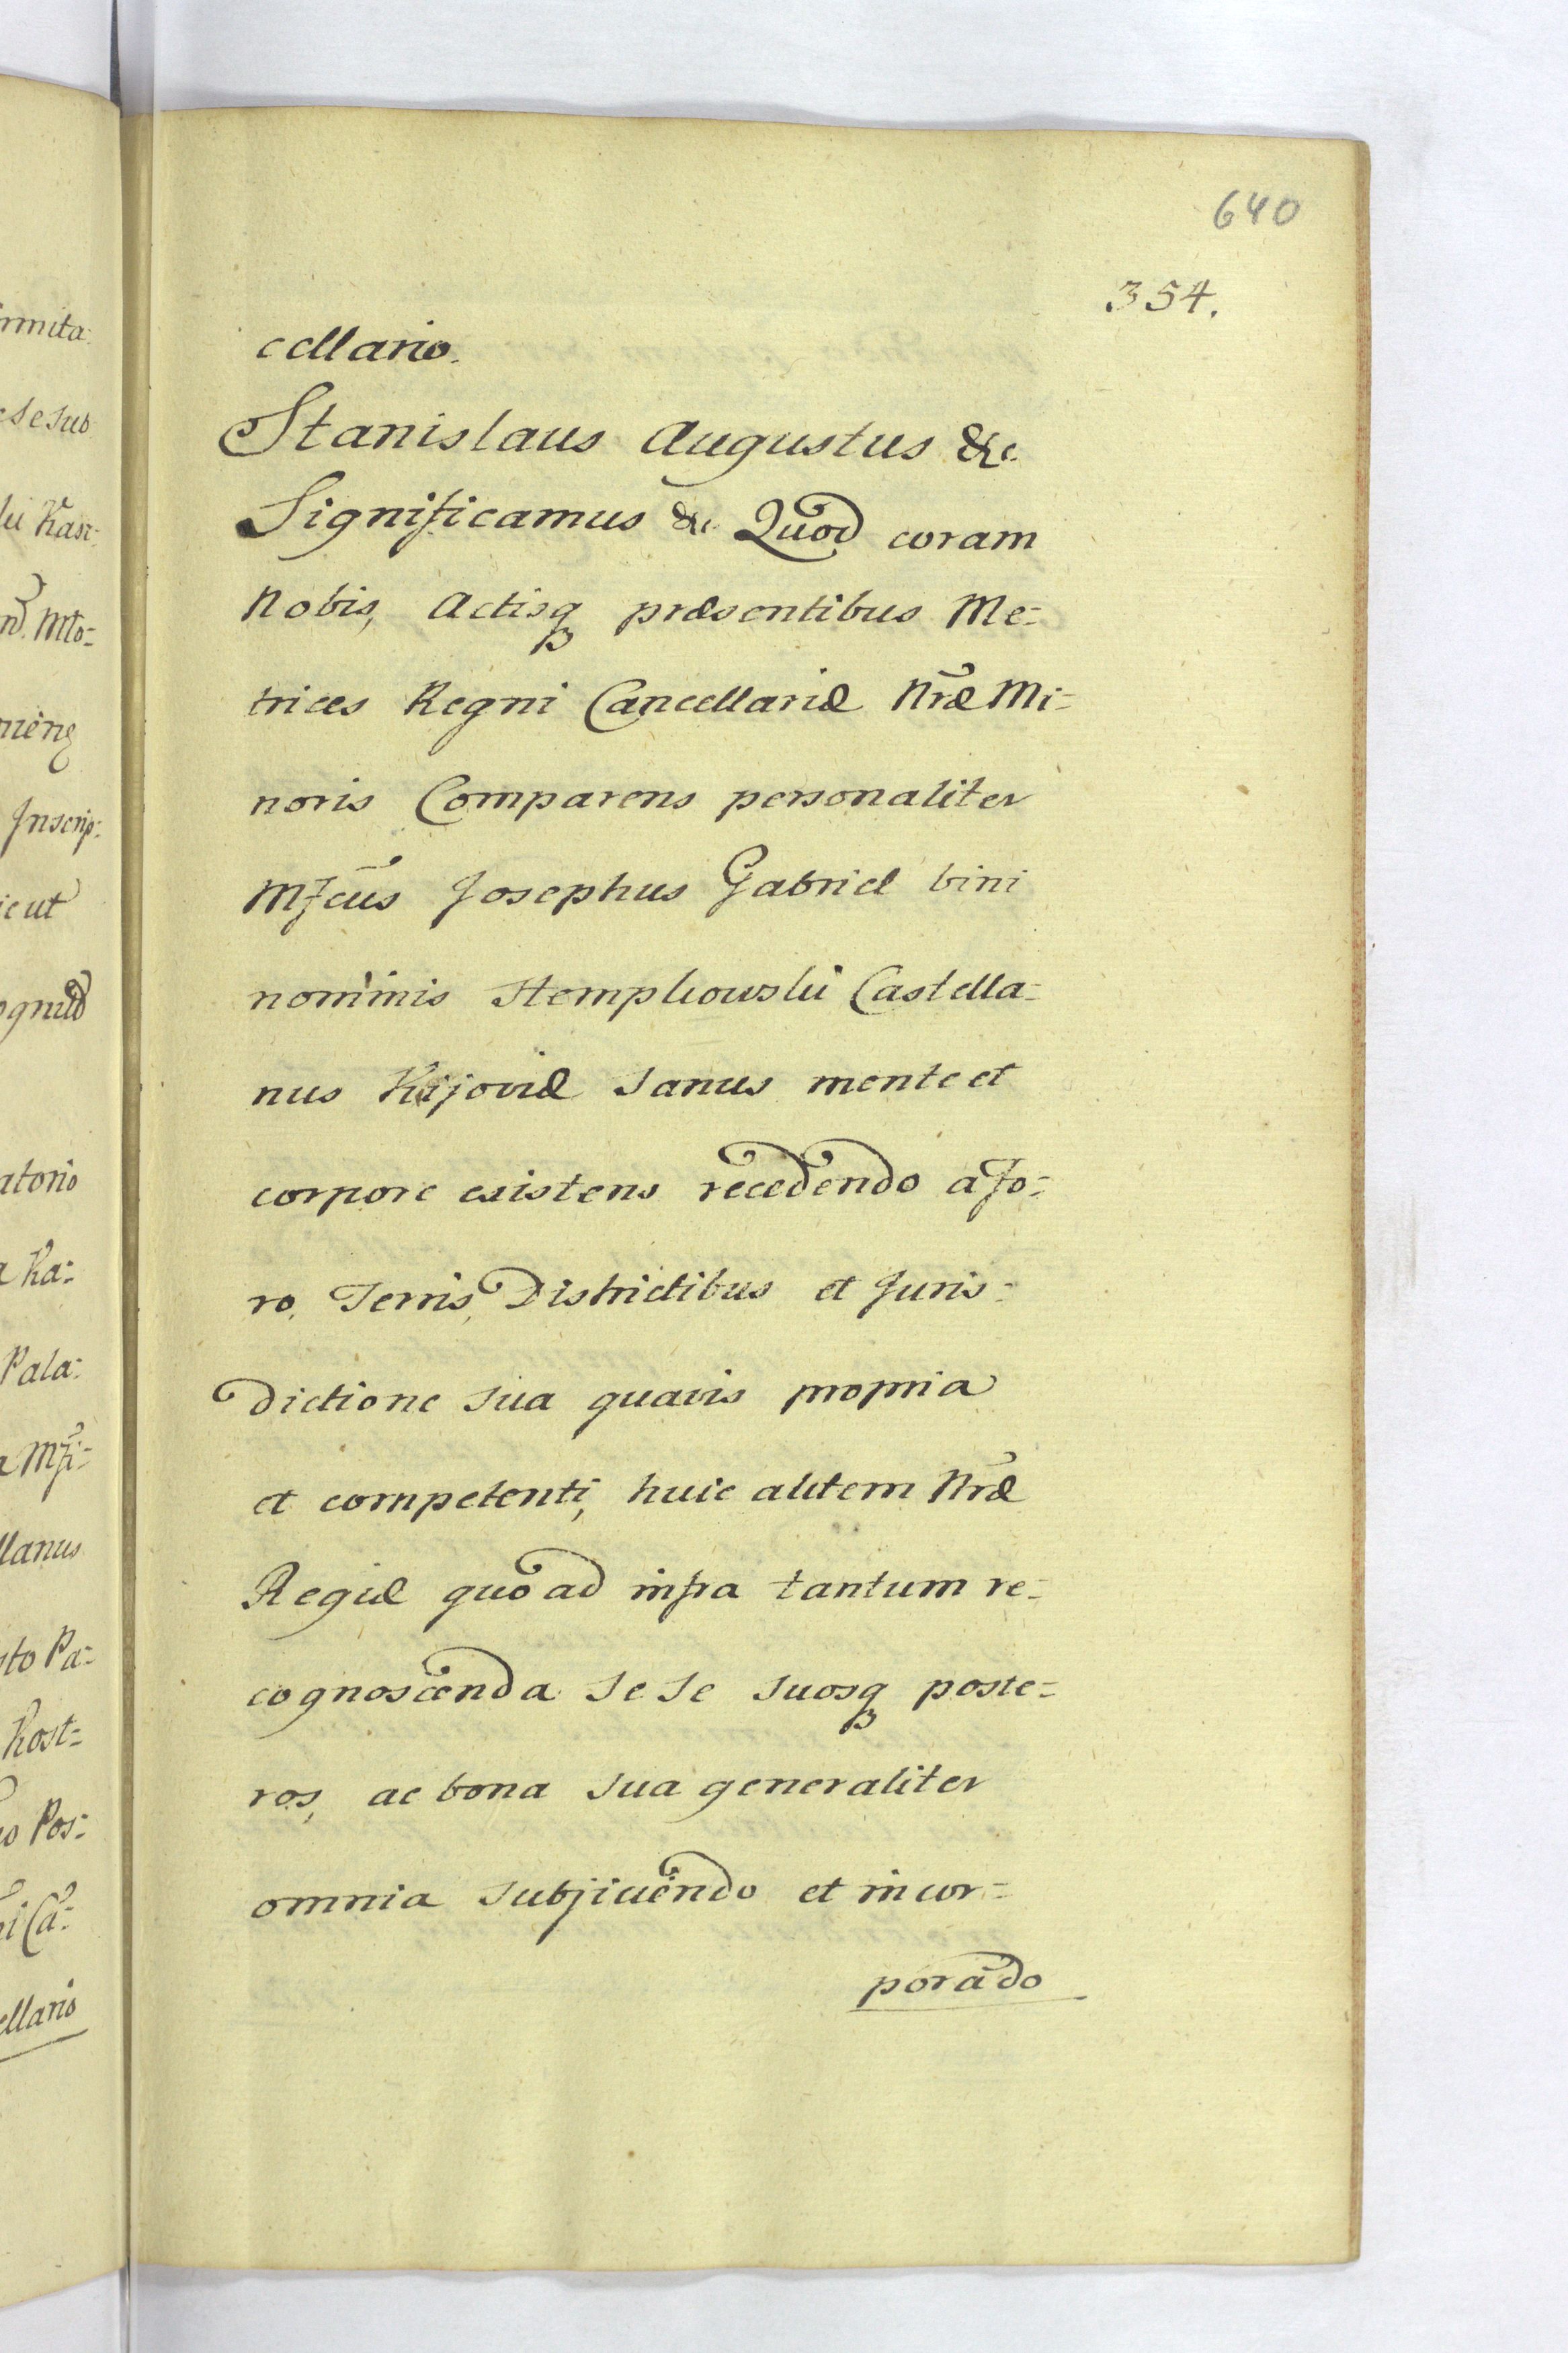 640
354.
cellario.
Stanislaus Augustus &c.
Significamus &c. Quod coram
Nobis, Actisq præsentibus Me=
trices Regni Cancellariæ Nræ Mi=
noris Comparens personaliter
Mfcus Josephus Gabriel bini
nominis Stempkowski Castella=
nus Kijoviæ Sanus mente et
corpore existens recedendo a fo=
ro, Terris, Districtibus et Juris=
dictione sua quavis propria
et competenti, huic autem Nræ
Regiæ quo ad infra tantum re=
cognoscenda sese suosq poste=
ros, ac bona sua generaliter
omnia subjiciendo et incor=
porãdo
rmita:
sesub
Mło=
Inscrip:
atorio
a Ka:
Pala:
llanus
sto Pa=
Kost=
Pos:
i Ca:
ellario